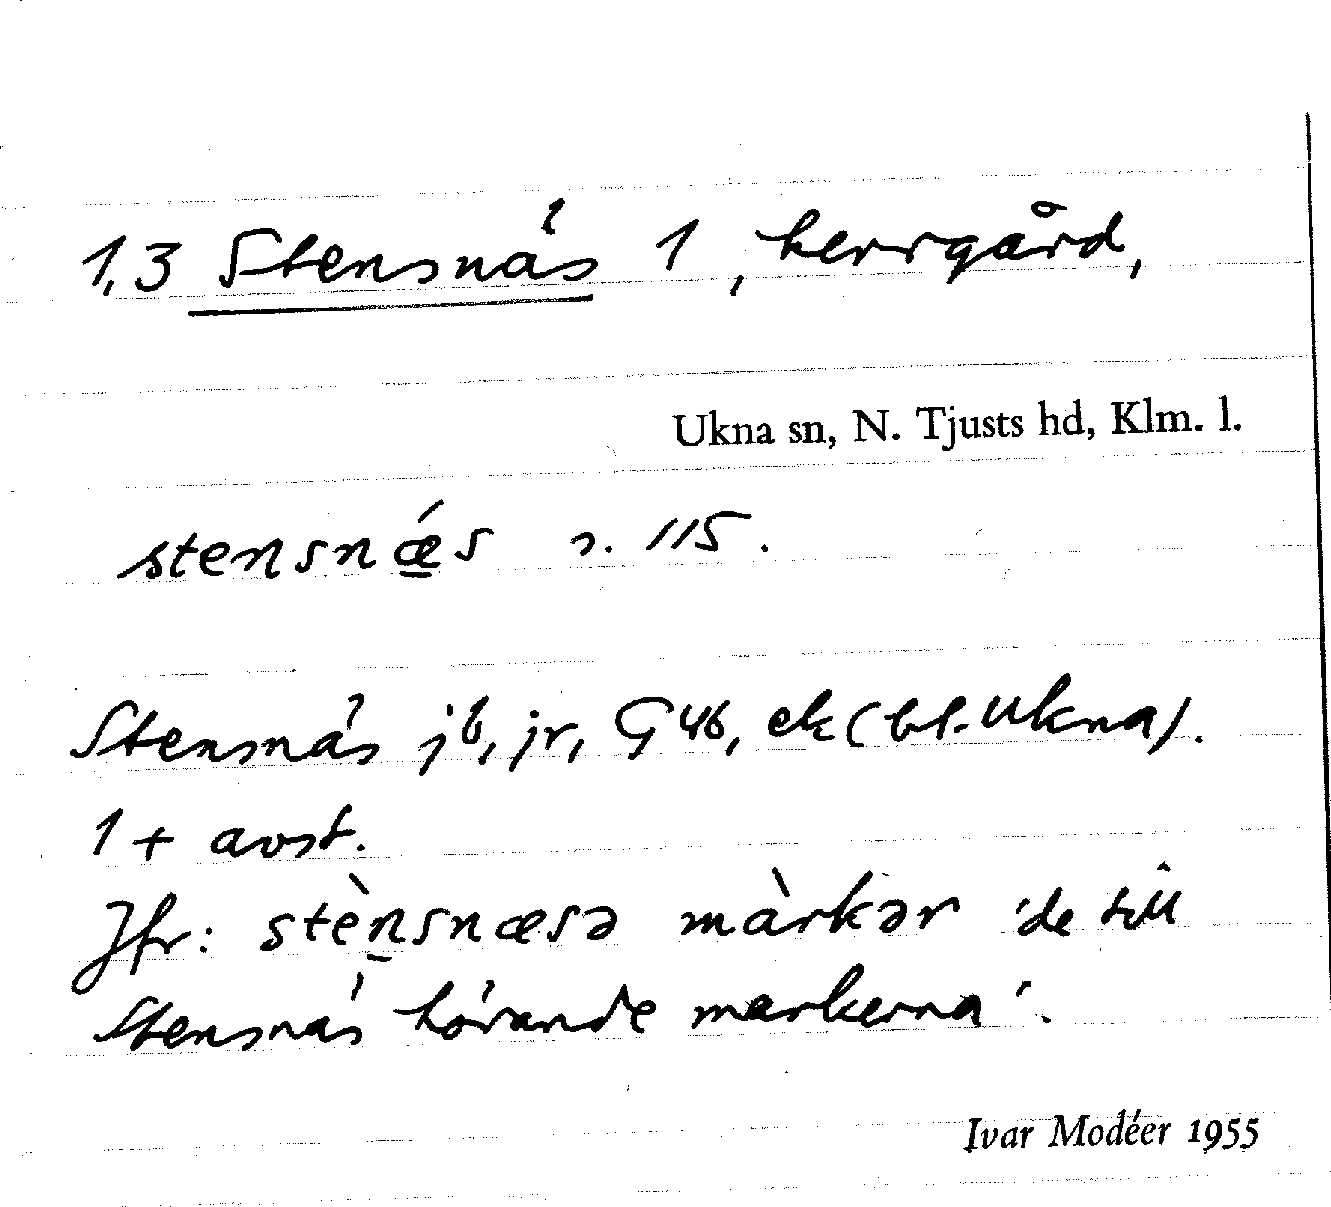 1,3 Stensnäs 1, herrgård,
Ukna sn, N. Tjusts hd, Klm. l.
stensnǽs s. 115.
Stensnäs jb, jr, G 46, ek (bl. Ukna).
1 + avst.
Jfr: stènsnæsə màrkər 'de till
Stensnäs hörande markerna'.
Ivar Modéer 1955